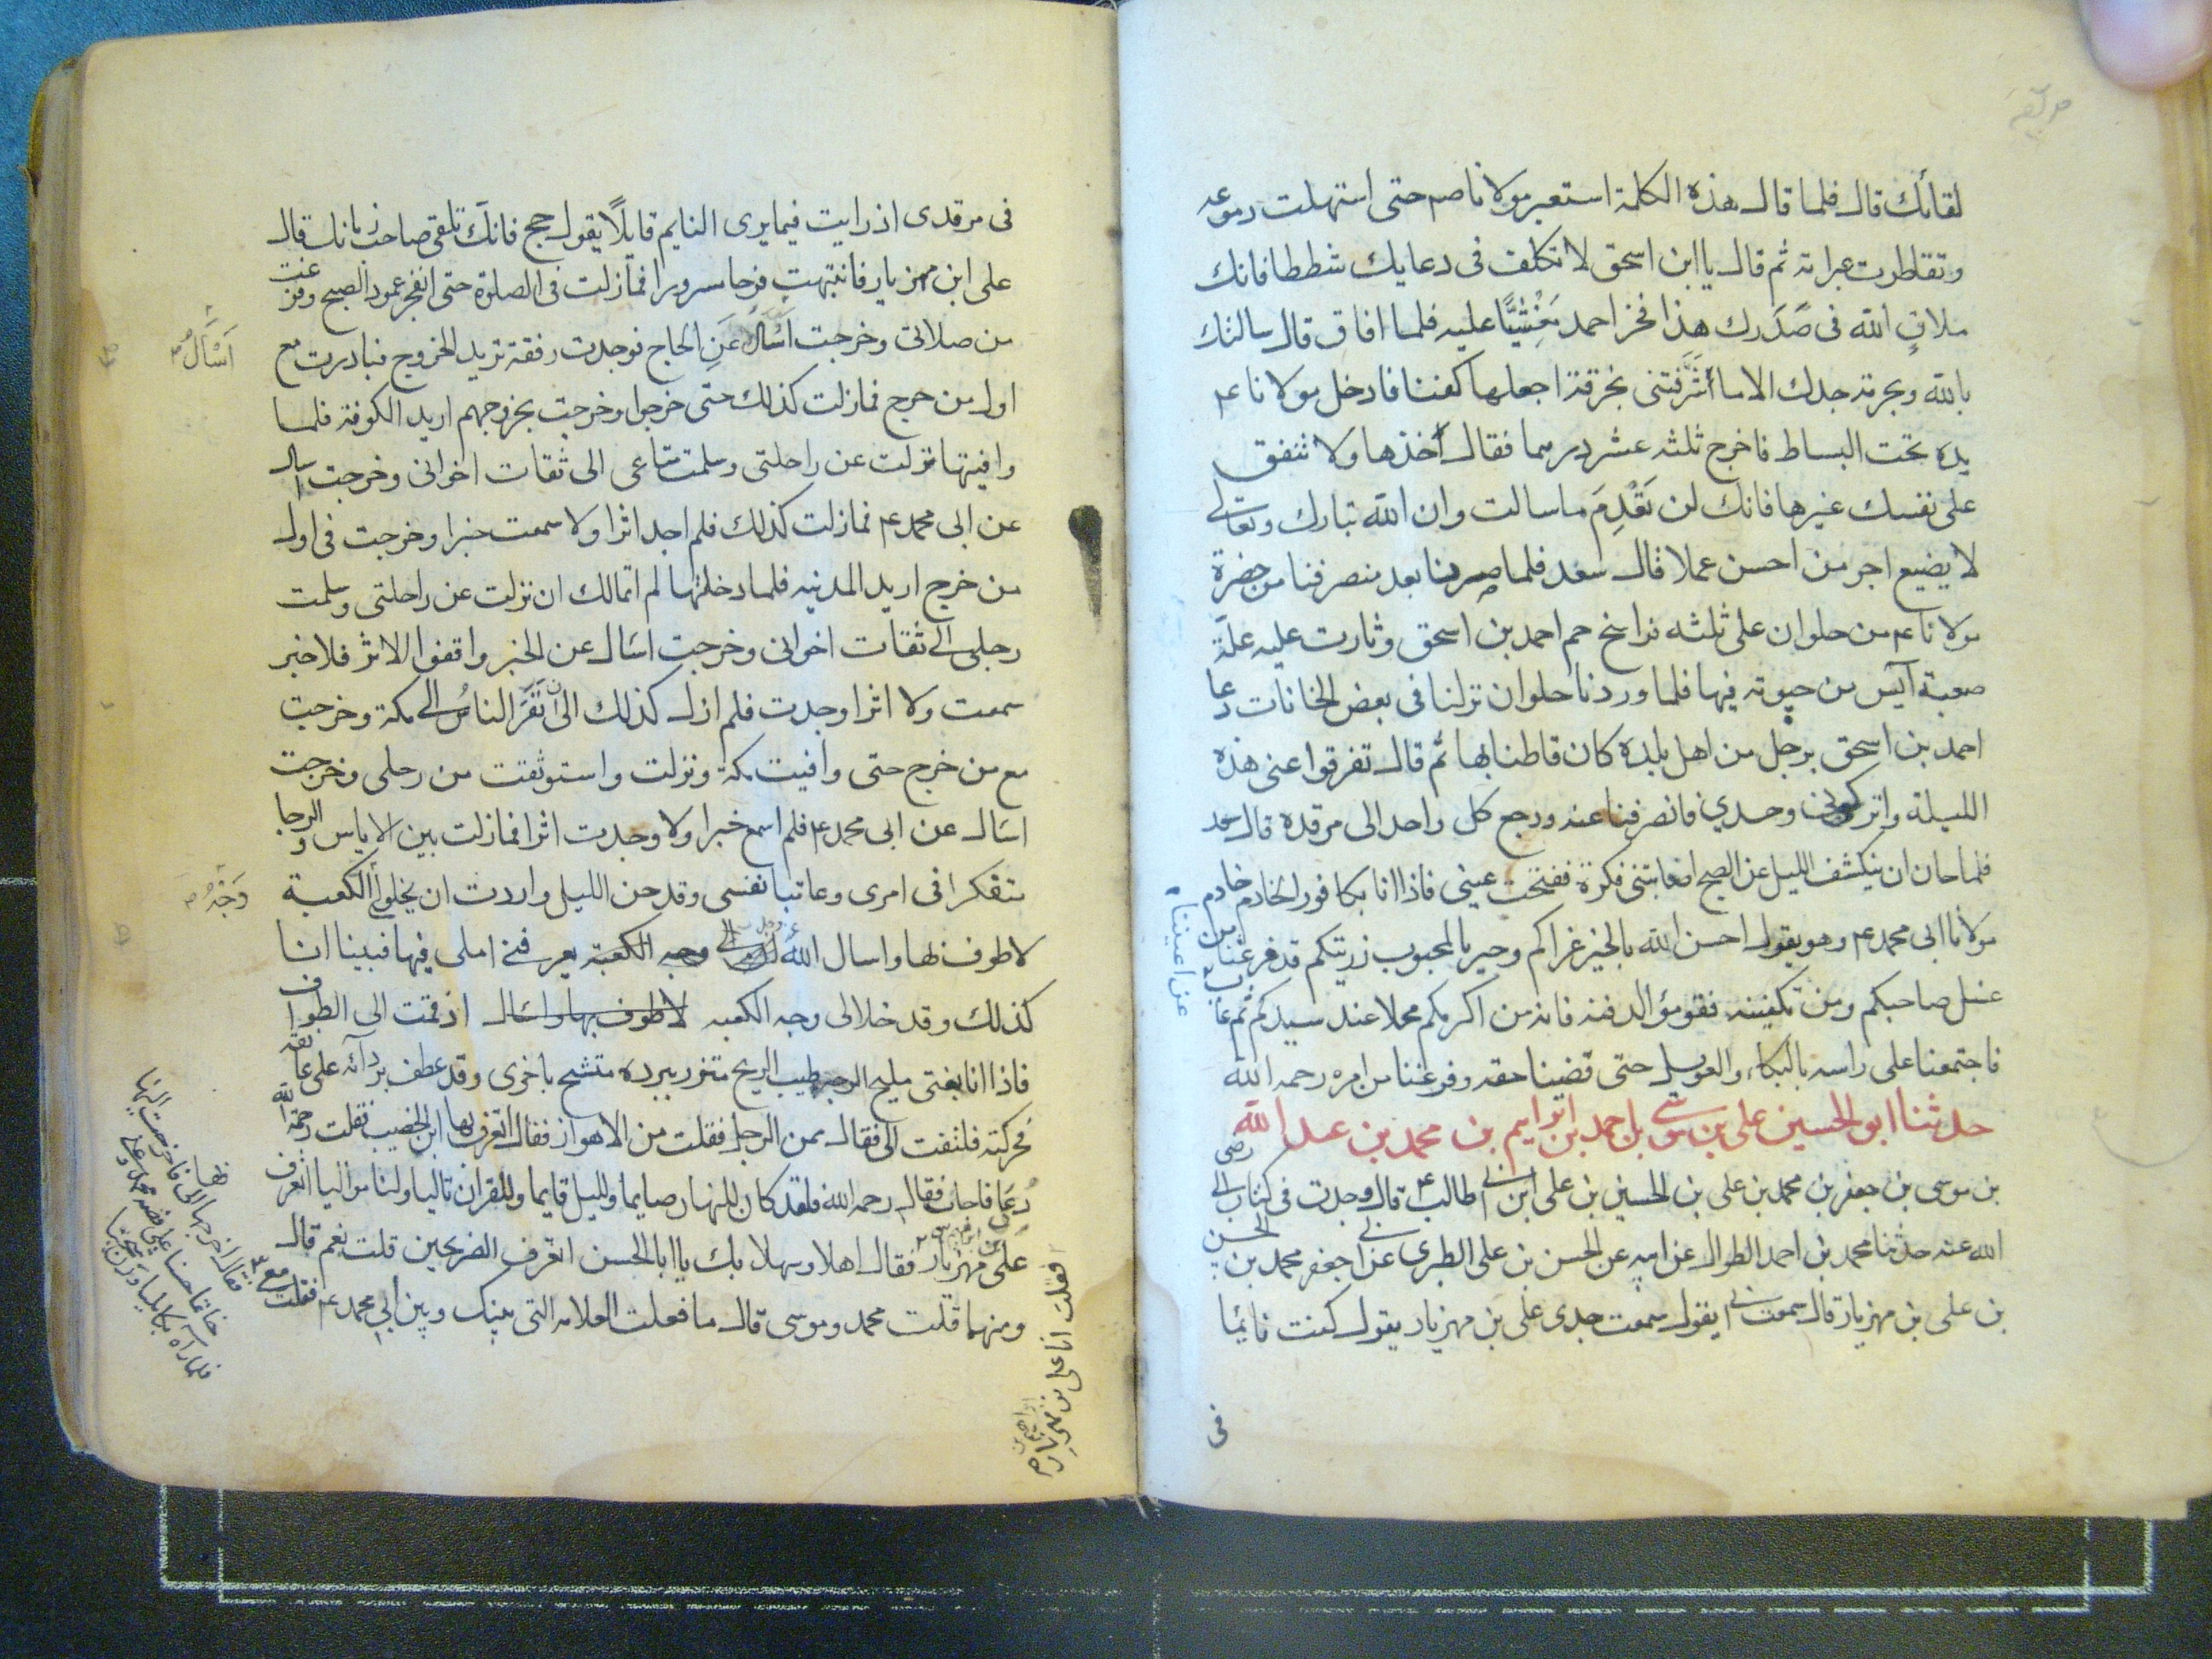 لقائك قال فلما قال هذه الكلمة استعبر مولانا صم حتى استهلت دموعه
وتقاطرت عبراته ثم قال يا ابن اسحق لا تكلف فى دعايك شططا فانك
ملاق الله فى صدرك هذا فخر احمد مغشيا عليه فلما افاق قال سالتك
بالله وبحرمة جدك الا ما شرفتنى بخرقة اجعلها كفنا فادخل مولانا ع
يده تحت البساط فاخرج ثلثه عشر درهما فقال خذها ولا تنفق
على نفسك غيرها فانك لن تعدم ما سالت وان الله تبارك وتعالى
لا يضيع اجر من احسن عملا قال سعد فلما صرنا بعد منصرفنا من حضرة
مولانا ع من حلوان على ثلثه فراسخ حم احمد بن اسحق وثارت عليه علة
صعبة آيس من حيوته فيها فلما وردنا حلوان نزلنا فى بعض الخانات دعا
احمد بن اسحق برجل من اهل بلده كان قاطنا بها ثم قال تفرقوا عنى هذه
الليلة واتركونى وحدي فانصرفنا عنه ورجع كل واحد الى مرقده قال سعد
فلما حان ان ينكشف الليل عن الصبح اصابتنى فكرة ففتحت عينى فاذا انا بكافور الخادم خادم
مولانا ابى محمد ع وهو يقول احسن الله بالخير عزاكم وجبر بالمحبوب رزيتكم قد فرغنا من
غسل صاحبكم ومن تكفينه فقوموا لدفنه فانه من اكرمكم محلا عند سيدكم ثم غاب
عن اعيننا
فاجتمعنا على راسه بالبكاء والعويل حتى قضينا حقه وفرغنا من امره رحمه الله
حدثنا ابو الحسين على بن موسى بن احمد بن ابراهيم بن محمد بن عبد الله
بن موسى بن جعفر بن محمد بن على بن الحسين بن على ابن ابى طالب ع قال وجدت فى كتاب ابى رضى
الله عنه حدثنا محمد بن احمد الطوال عن ابيه عن الحسن بن على الطبرى عن ابى جعفر محمد بن الحسن
بن على بن مهزيار قال سمعت ابى يقول سمعت جدى على بن مهزيار يقول كنت نائما
فى
فى مرقدى اذ رايت فيما يرى النايم قايلا يقول حج فانك تلقى صاحب زمانك قال
على ابن مهزيار فانتبهت فرحا مسرورا فما زلت فى الصلوة حتى انفجر عمود الصبح وفرغت
من صلاتى وخرجت اسال عن الحاج فوجدت رفقة تريد الخروج فبادرت مع
اسال
اول من خرج فما زلت كذلك حتى خرجوا وخرجت بخروجهم اريد الكوفة فلما
وافيتها نزلت عن راحلتى وسلمت متاعى الى ثقات اخوانى وخرجت اسال
عن ابى محمد ع فما زلت كذلك فلم اجد اثرا ولا سمعت خبرا وخرجت فى اول
من خرج اريد المدينه فلما دخلتها لم اتمالك ان نزلت عن راحلتى وسلمت
رحلى الى ثقات اخوانى وخرجت اسال عن الخبر واقفوا الاثر فلا خبر
سمعت ولا اثرا وجدت فلم ازل كذلك الى ان نفر الناس الى مكة وخرجت
مع من خرج حتى وافيت مكة ونزلت واستوثقت من رحلى وخرجت
اسال عن ابى محمد ع فلم اسمع خبرا ولا وجدت اثرا فما زلت بين الاياس والرجا
متفكرا فى امرى وعاتبا نفسى وقد جن الليل واردت ان يخلو لى الكعبة
وجه
لاطوف بها واسال الله عز وجل وجه الكعبة يعرفنى املى فيها فبينا انا
كذلك وقد خلا لى وجه الكعبه لاطوف بها واسال اذ قمت الى الطواف
فاذا انا بفتى مليح الوجه طيب الريح متزر ببرده متشح باخرى وقد عطف بردائه على عاتقه
فحركته فلتفت الى فقال ممن الرجل فقلت من الاهواز فقال اتعرف بها ابن الخصيب فقلت رحمة الله
دعى فاجاب فقال رحمه الله فلقد كان للنهار صايما ولليل قايما وللقران تاليا ولنا مواليا اتعرف
على بن مهزيار فقال اهلا وسهلا بك يا ابا الحسن اتعرف الضريحين قلت نعم قال
فقلت انا على بن مهزيار
ومنهما قلت محمد وموسى قال ما فعلت العلامه التى بينك وبين ابى محمد ع فقلت معى
فقال اخرجها الى فاخرجت اليها
خاتما حسنا على فصه محمد وعلى